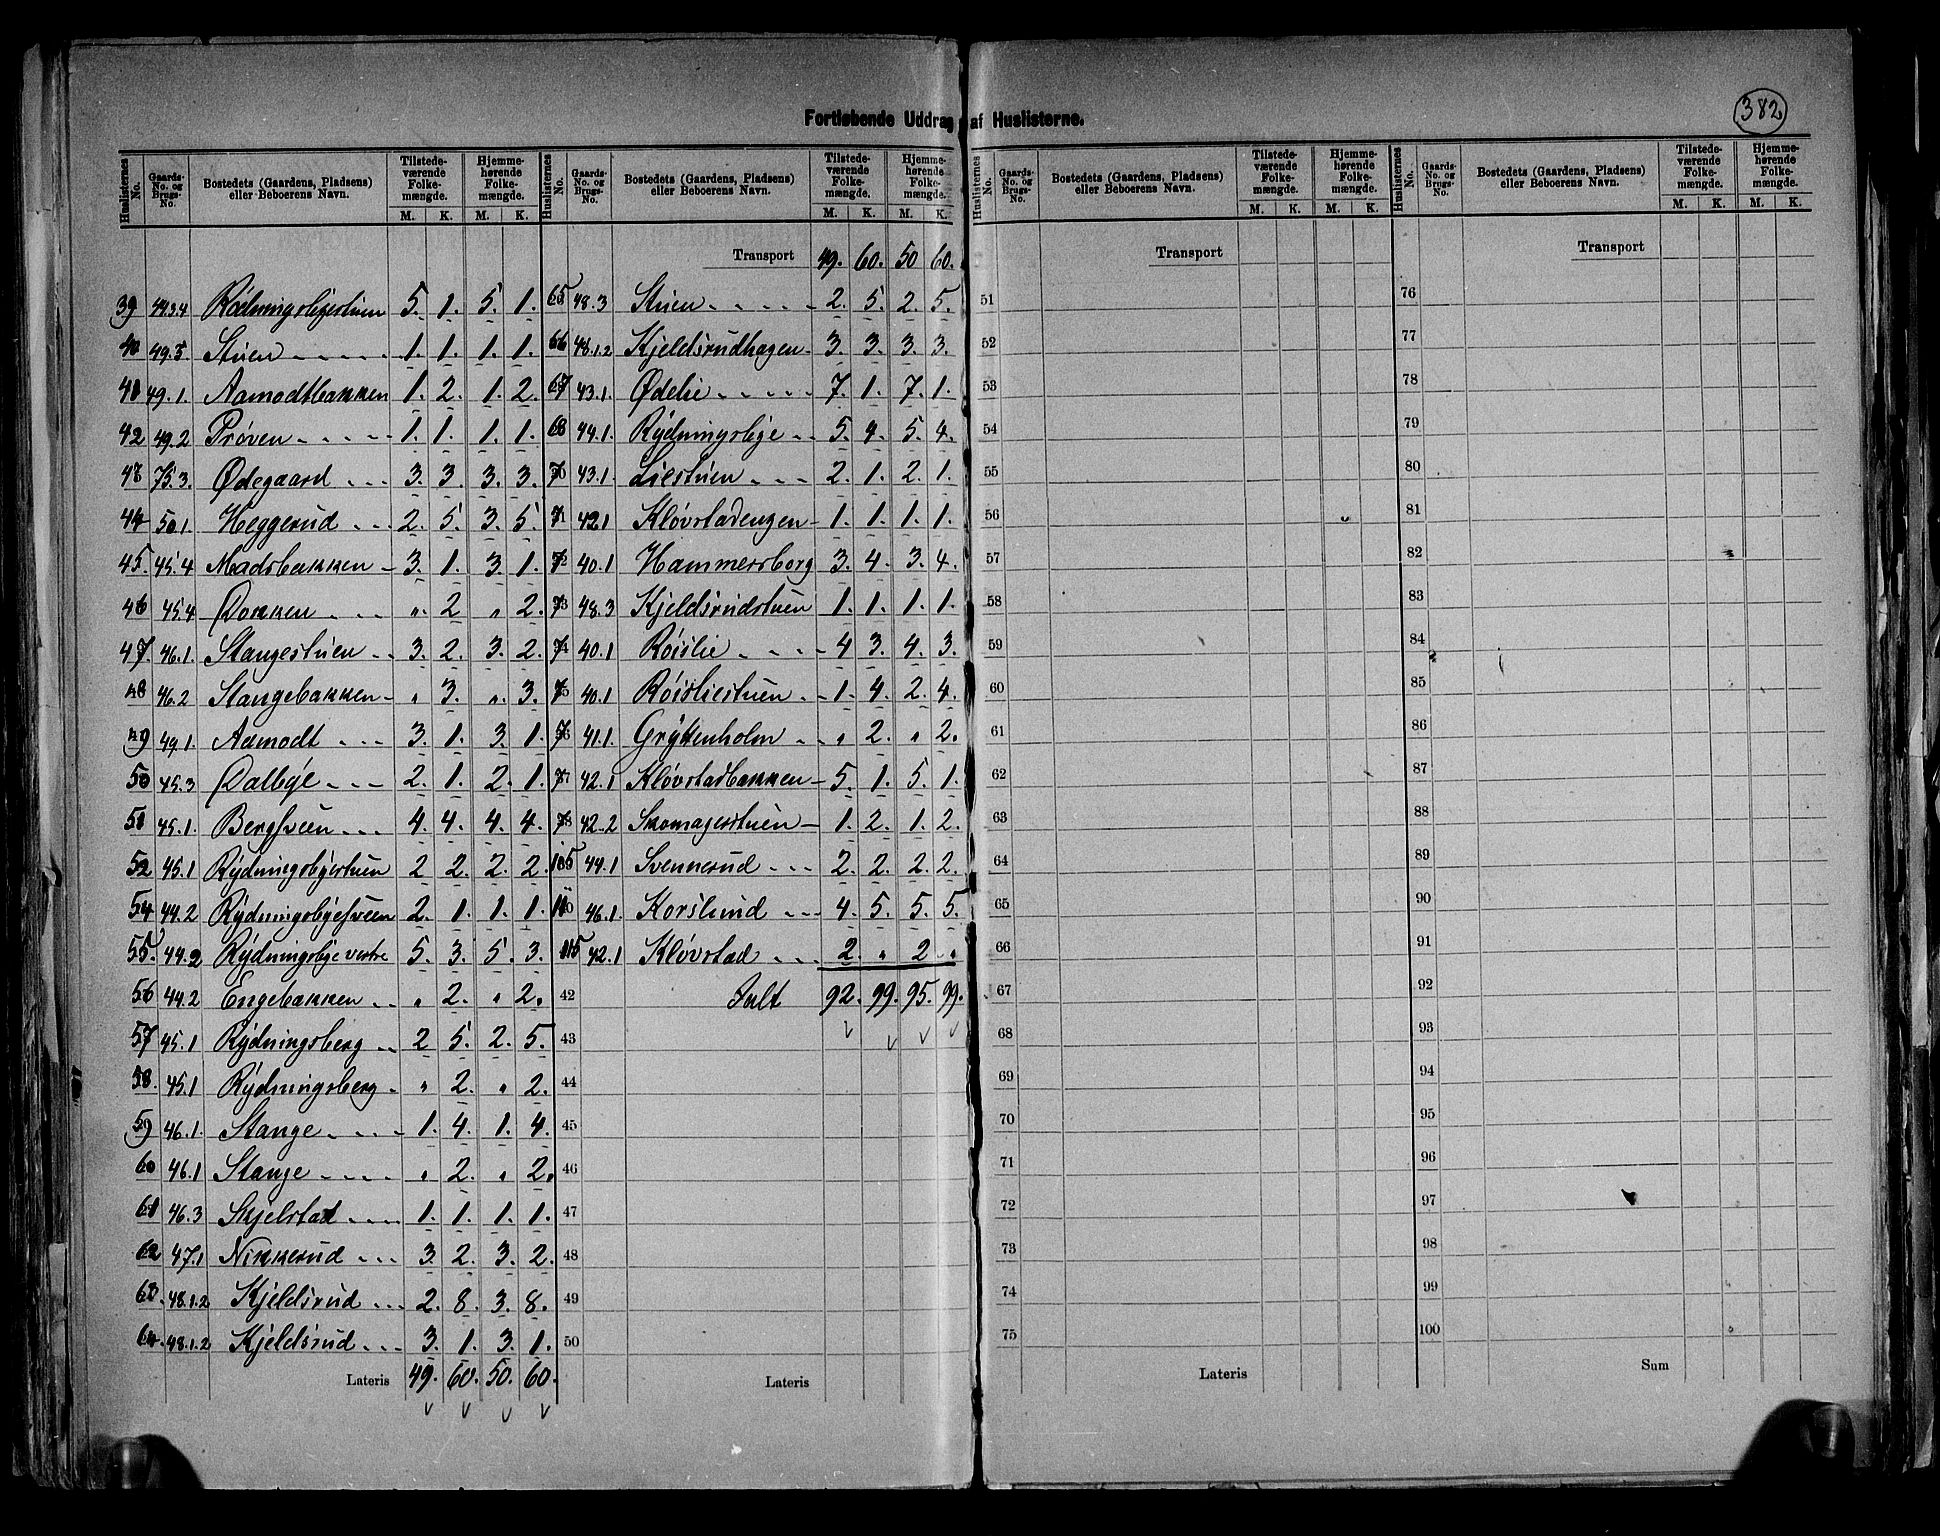 382
Fortløbende Uddrag af Huslisterne.
Huslisternes No. Gaards-No. og Brugs-No. Bostedets (Gaardens, Pladsens) eller Beboerens Navn. Tilstedeværende Folkemængde. M. K. Hjemmehørende Folkemængde. M. K.
39 44.3.4 Rödningsbyestuen 5. 1. 5. 1.
40 49.5 Stuen 1. 1. 1. 1.
41 49.1. Aamodtbakken 1. 2. 1. 2.
42 49.2 Prøven 1. 1. 1. 1.
43 75.3. Ødegaard 3. 3. 3. 3.
44 50.1 Heggerud 2. 5. 3. 5.
45. 45.4 Madsbakken 3. 1. 3. 1.
46 45.4 Dokken „ 2 „ 2.
47. 46.1. Stangestuen 3. 2. 3. 2.
48 46.2 Stangebakken „ 3. „ 3.
49 49.1. Aamodt 3. 1. 3. 1.
50 45.3 Dalbye 2. 1. 2. 1.
51 45.1. Bergsveen 4. 4. 4. 4.
52 45.1 Rydningsbyestuen 2 2. 2. 2.
54 44.2 Rydningsbyesveen 2. 1. 1. 1.
55. 44.2 Rydningsbye vestre 5. 3. 5. 3.
56 44.2 Engebakken „ 2. „ 2.
57 45.1 Rydningsberg 2 5. 2. 5.
58. 45.1 Rydningsberg „ 2. „ 2.
59 46.1. Stange 1. 4. 1. 4.
60 46.1 Stange „ 2. „ 2.
61 46.3 Skjelstad 1. 1. 1. 1.
62 47.1 Nikkerud 3. 2. 3. 2.
63. 48.1.2 Kjeldsrud 2. 8. 3. 8.
64. 48.1.2 Kjeldsrud 3. 1. 3. 1.
Lateris 49. 60. 50. 60.
Huslisternes No. Gaards-No. og Brugs-No. Bostedets (Gaardens, Pladsens) eller Beboerens Navn. Tilstedeværende Folkemængde. M. K. Hjemmehørende Folkemængde. M. K.
Transport 49. 60. 50 60.
65 48.3 Stuen 2. 5. 2. 5.
66 48.1.2 Kjeldsrudhagen 3. 3. 3. 3.
67 43.1. Ødelie 7. 1. 7. 1.
68 44.1. Rydningsbye 5. 4. 5. 4.
70 43.1. Liestuen 2. 1. 2. 1.
71 42.1 Kløvstadengen 1. 1. 1. 1.
72 40.1 Hammersborg 3. 4. 3. 4.
73 48.3 Kjeldsrudstuen 1. 1. 1. 1.
74 40.1 Røislie 4 3. 4. 3.
75 40.1 Røisliestuen 1. 4. 2. 4.
76 41.1. Gryttenholm „ 2. „ 2.
77 42.1 Kløvstadbakken 5. 1. 5. 1.
78 42.2 Skomagerstuen 1. 2. 1. 2.
105 44.1 Svennerud 2. 2. 2. 2.
110 46.1. Korslund 4. 5. 5. 5.
115 42.1 Kløvstad 2. „ 2. „
42 Ialt 92. 99. 95. 99.
43
44
45
46
47
48
49
50
Lateris
Huslisternes No. Gaards-No. og Brugs-No. Bostedets (Gaardens, Pladsens) eller Beboerens Navn. Tilstedeværende Folkemængde. M. K. Hjemmehørende Folkemængde. M. K.
Transport
51
52
53
54
55
56
57
58
59
60
61
62
63
64
65
66
67
68
69
70
71
72
73
74
75
Lateris
Huslisternes No. Gaards-No. og Brugs-No. Bostedets (Gaardens, Pladsens) eller Beboerens Navn. Tilstedeværende Folkemængde. M. K. Hjemmehørende Folkemængde. M. K.
Transport
76
77
78
79
80
81
82
83
84
85
86
87
88
89
90
91
92
93
94
95
96
97
98
99
100
Sum